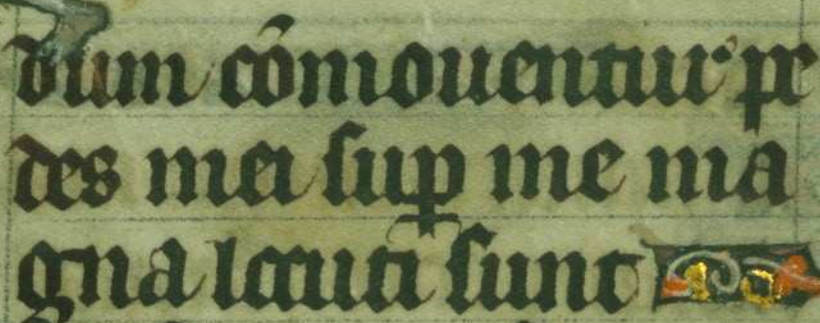 dum cōmouentur pe
des mei ſuꝑ me ma
gna locuti ſunt